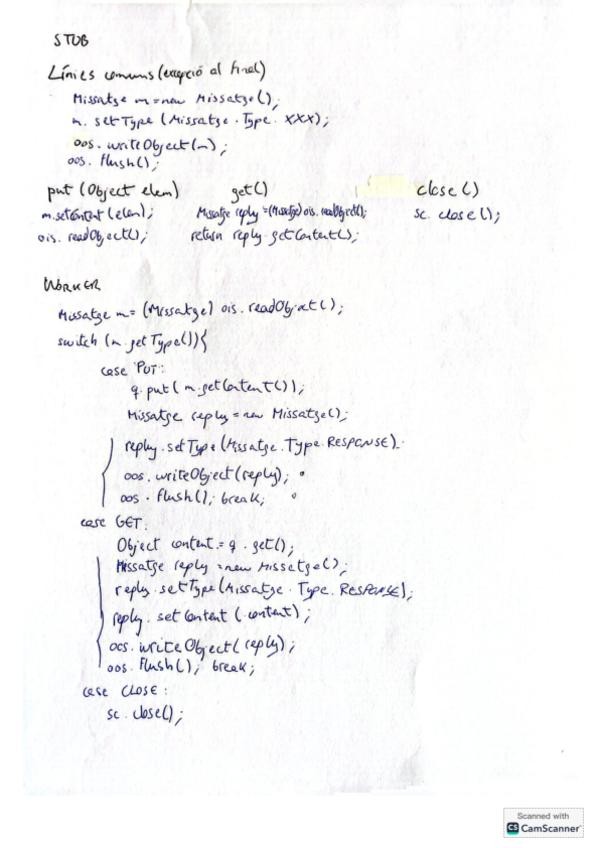 STUB
Línies comuns (excepció al final)
Missatge m = new Missatge();
m. setType (Missatge. Type. XXX);
oos. writeObject(m);
oos. flush();
put (Object elem) get() close()
m.setContent (elem); Missatge reply = (Missatge) ois. readObject(); sc. close();
ois. readObject(); return reply. getContent();
WORKER
Missatge m = (Missatge) ois. readObject();
switch (m. getType()){
case PUT:
q. put( m. getContent());
Missatge reply = new Missatge();
reply. setType (Missatge. Type. RESPONSE).
oos. writeObject(reply);
oos. flush(); break;
case GET:
Object content = q. get();
Missatge reply = new Missatge();
reply. setType (Missatge. Type. RESPONSE);
reply. setContent (content);
oos. writeObject( reply);
oos. flush(); break;
case CLOSE:
sc. close();
Scanned with
CS CamScanner